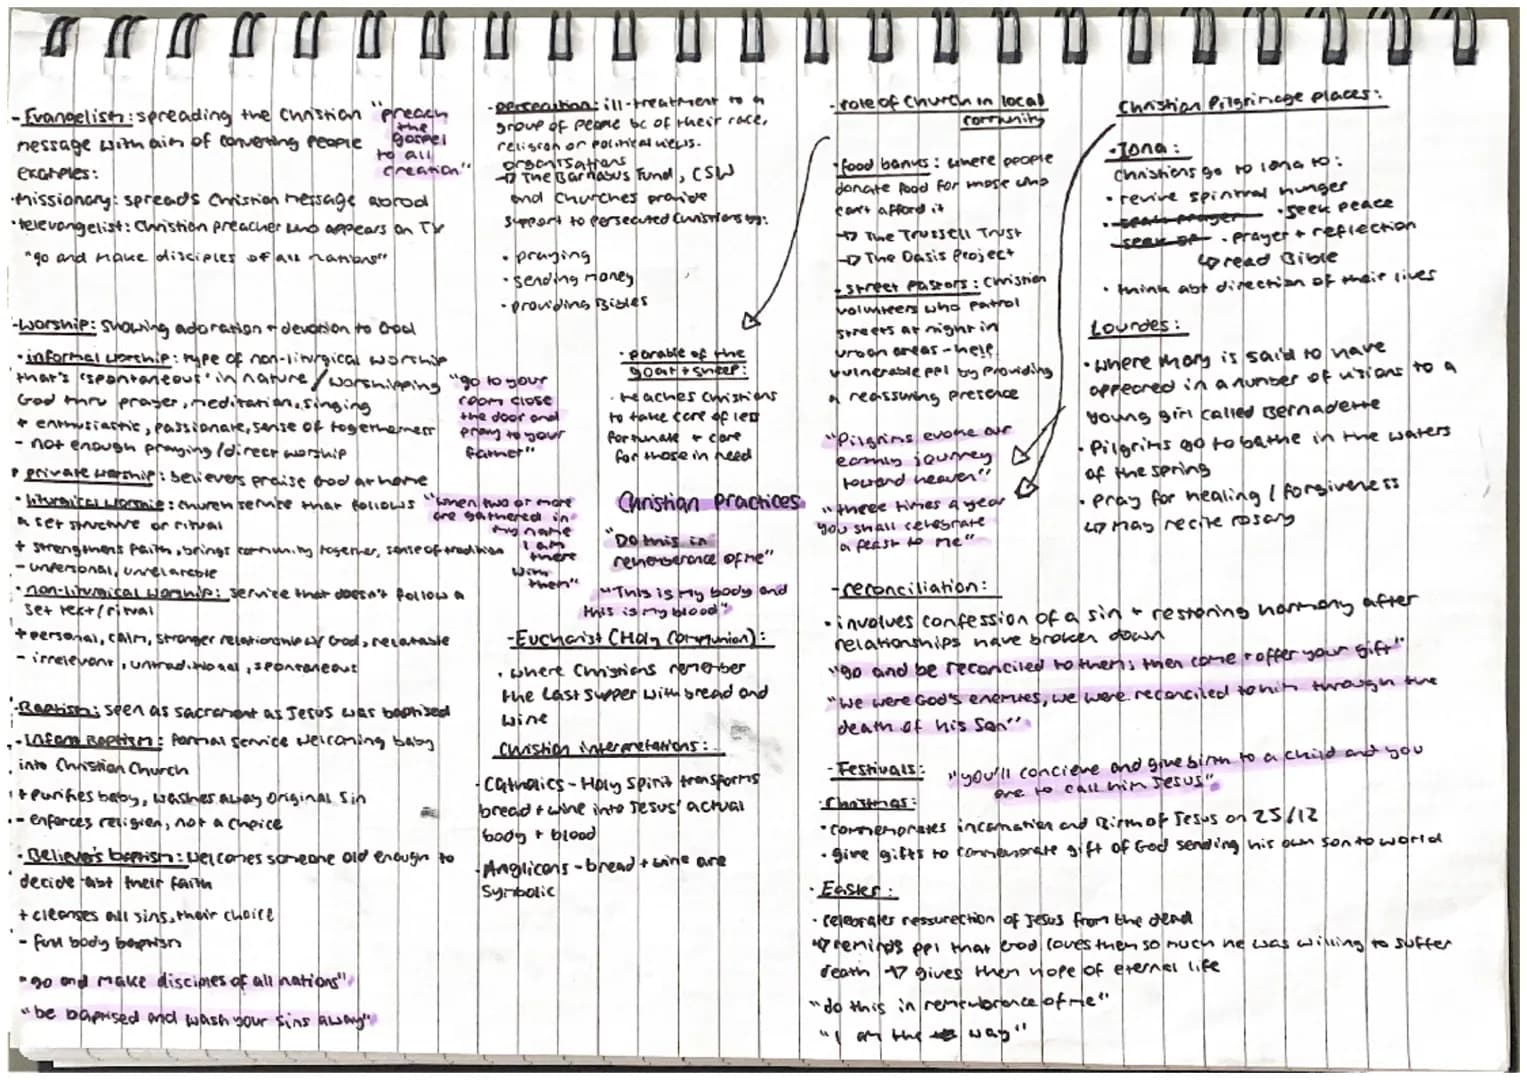 - Evangelism: spreading the Christian
message with aim of converting people
examples:
"preach
the
gospel
to all
creation"
·missionary: spreads Christian message abroad
·televangelist: Christian preacher who appears on TV
"go and make disciples of all nations"
-Worship: showing adoration + devotion to God
·informal worship: type of non-liturgical worship
that's 'spontaneous' in nature/worshipping
God thru prayer, meditation, singing
+ enthusiastic, passionate, sense of togetherness
- not enough praying/direct worship
"go to your
room close
the door and
pray to your
father"
· private worship: believers praise God at home
· liturgical worship: church service that follows
a set structure or ritual
+ strengthens faith, brings community together, sense of tradition
- unpersonal, unrelatable
"when two or more
are gathered in
my name
I am
there
with
them"
· non-liturgical worship: service that doesn't follow a
set text/ritual
+ personal, calm, stronger relationship w/ God, relatable
- irrelevant, untraditional, spontaneous
·Baptism: seen as sacrament as Jesus was baptised
·Infant Baptism: formal service welcoming baby
into Christian Church
+ purifies baby, washes away Original Sin
- enforces religion, not a choice
· Believer's baptism: welcomes someone old enough to
decide abt their faith
+ cleanses all sins, their choice
- full body baptism
"go and make disciples of all nations"
"be baptised and wash your sins away"
·persecution: ill-treatment to a
group of people bc of their race,
religion or political views.
organisations
↳ The Barnabus Fund, CSW
and Churches provide
support to persecuted Christians by:
· praying
· sending money
· providing Bibles
· parable of the
goat + sheep:
· teaches Christians
to take care of less
fortunate + care
for those in need
Christian Practices
"
Do this in
rememberance of me"
"This is my body and
this is my blood"
-Eucharist (Holy Communion):
· where Christians remember
the Last Supper with bread and
wine
Christian interpretations:
·Catholics - Holy Spirit transforms
bread + wine into Jesus' actual
body + blood
·Anglicans - bread + wine are
symbolic
- role of Church in local
community
·food banks: where people
donate food for those who
can't afford it
↳ The Trussell Trust
↳ The Oasis Project
· street pastors: Christian
volunteers who patrol
streets at night in
urban areas - help
vulnerable ppl by providing
a reassuring presence
"Pilgrims evoke our
earthly journey
toward heaven"
"three times a year
you shall celebrate
a feast to me"
Christian Pilgrimage places:
·Iona:
Christians go to Iona to:
· revive spiritual hunger
· seek prayer · seek peace
seek of · prayer + reflection
↳ read Bible
· think abt direction of their lives
Lourdes:
· where Mary is said to have
appeared in a number of visions to a
young girl called Bernadette
· Pilgrims go to bathe in the waters
of the spring
· pray for healing / forgiveness
↳ may recite rosary
-reconciliation:
· involves confession of a sin + restoring harmony after
relationships have broken down
"go and be reconciled to them; then come + offer your gift"
"we were God's enemies, we were reconciled to him through the
death of his Son"
- Festivals:
"you'll concieve and give birth to a child and you
are to call him Jesus"
·Christmas:
· commemorates incarnation and Birth of Jesus on 25/12
· give gifts to commemorate gift of God sending his own son to world
· Easter:
· celebrates ressurection of Jesus from the dead
↳ reminds ppl that God loves them so much he was willing to suffer
death ↳ gives them hope of eternal life
"do this in rememberance of me"
"I am the way"